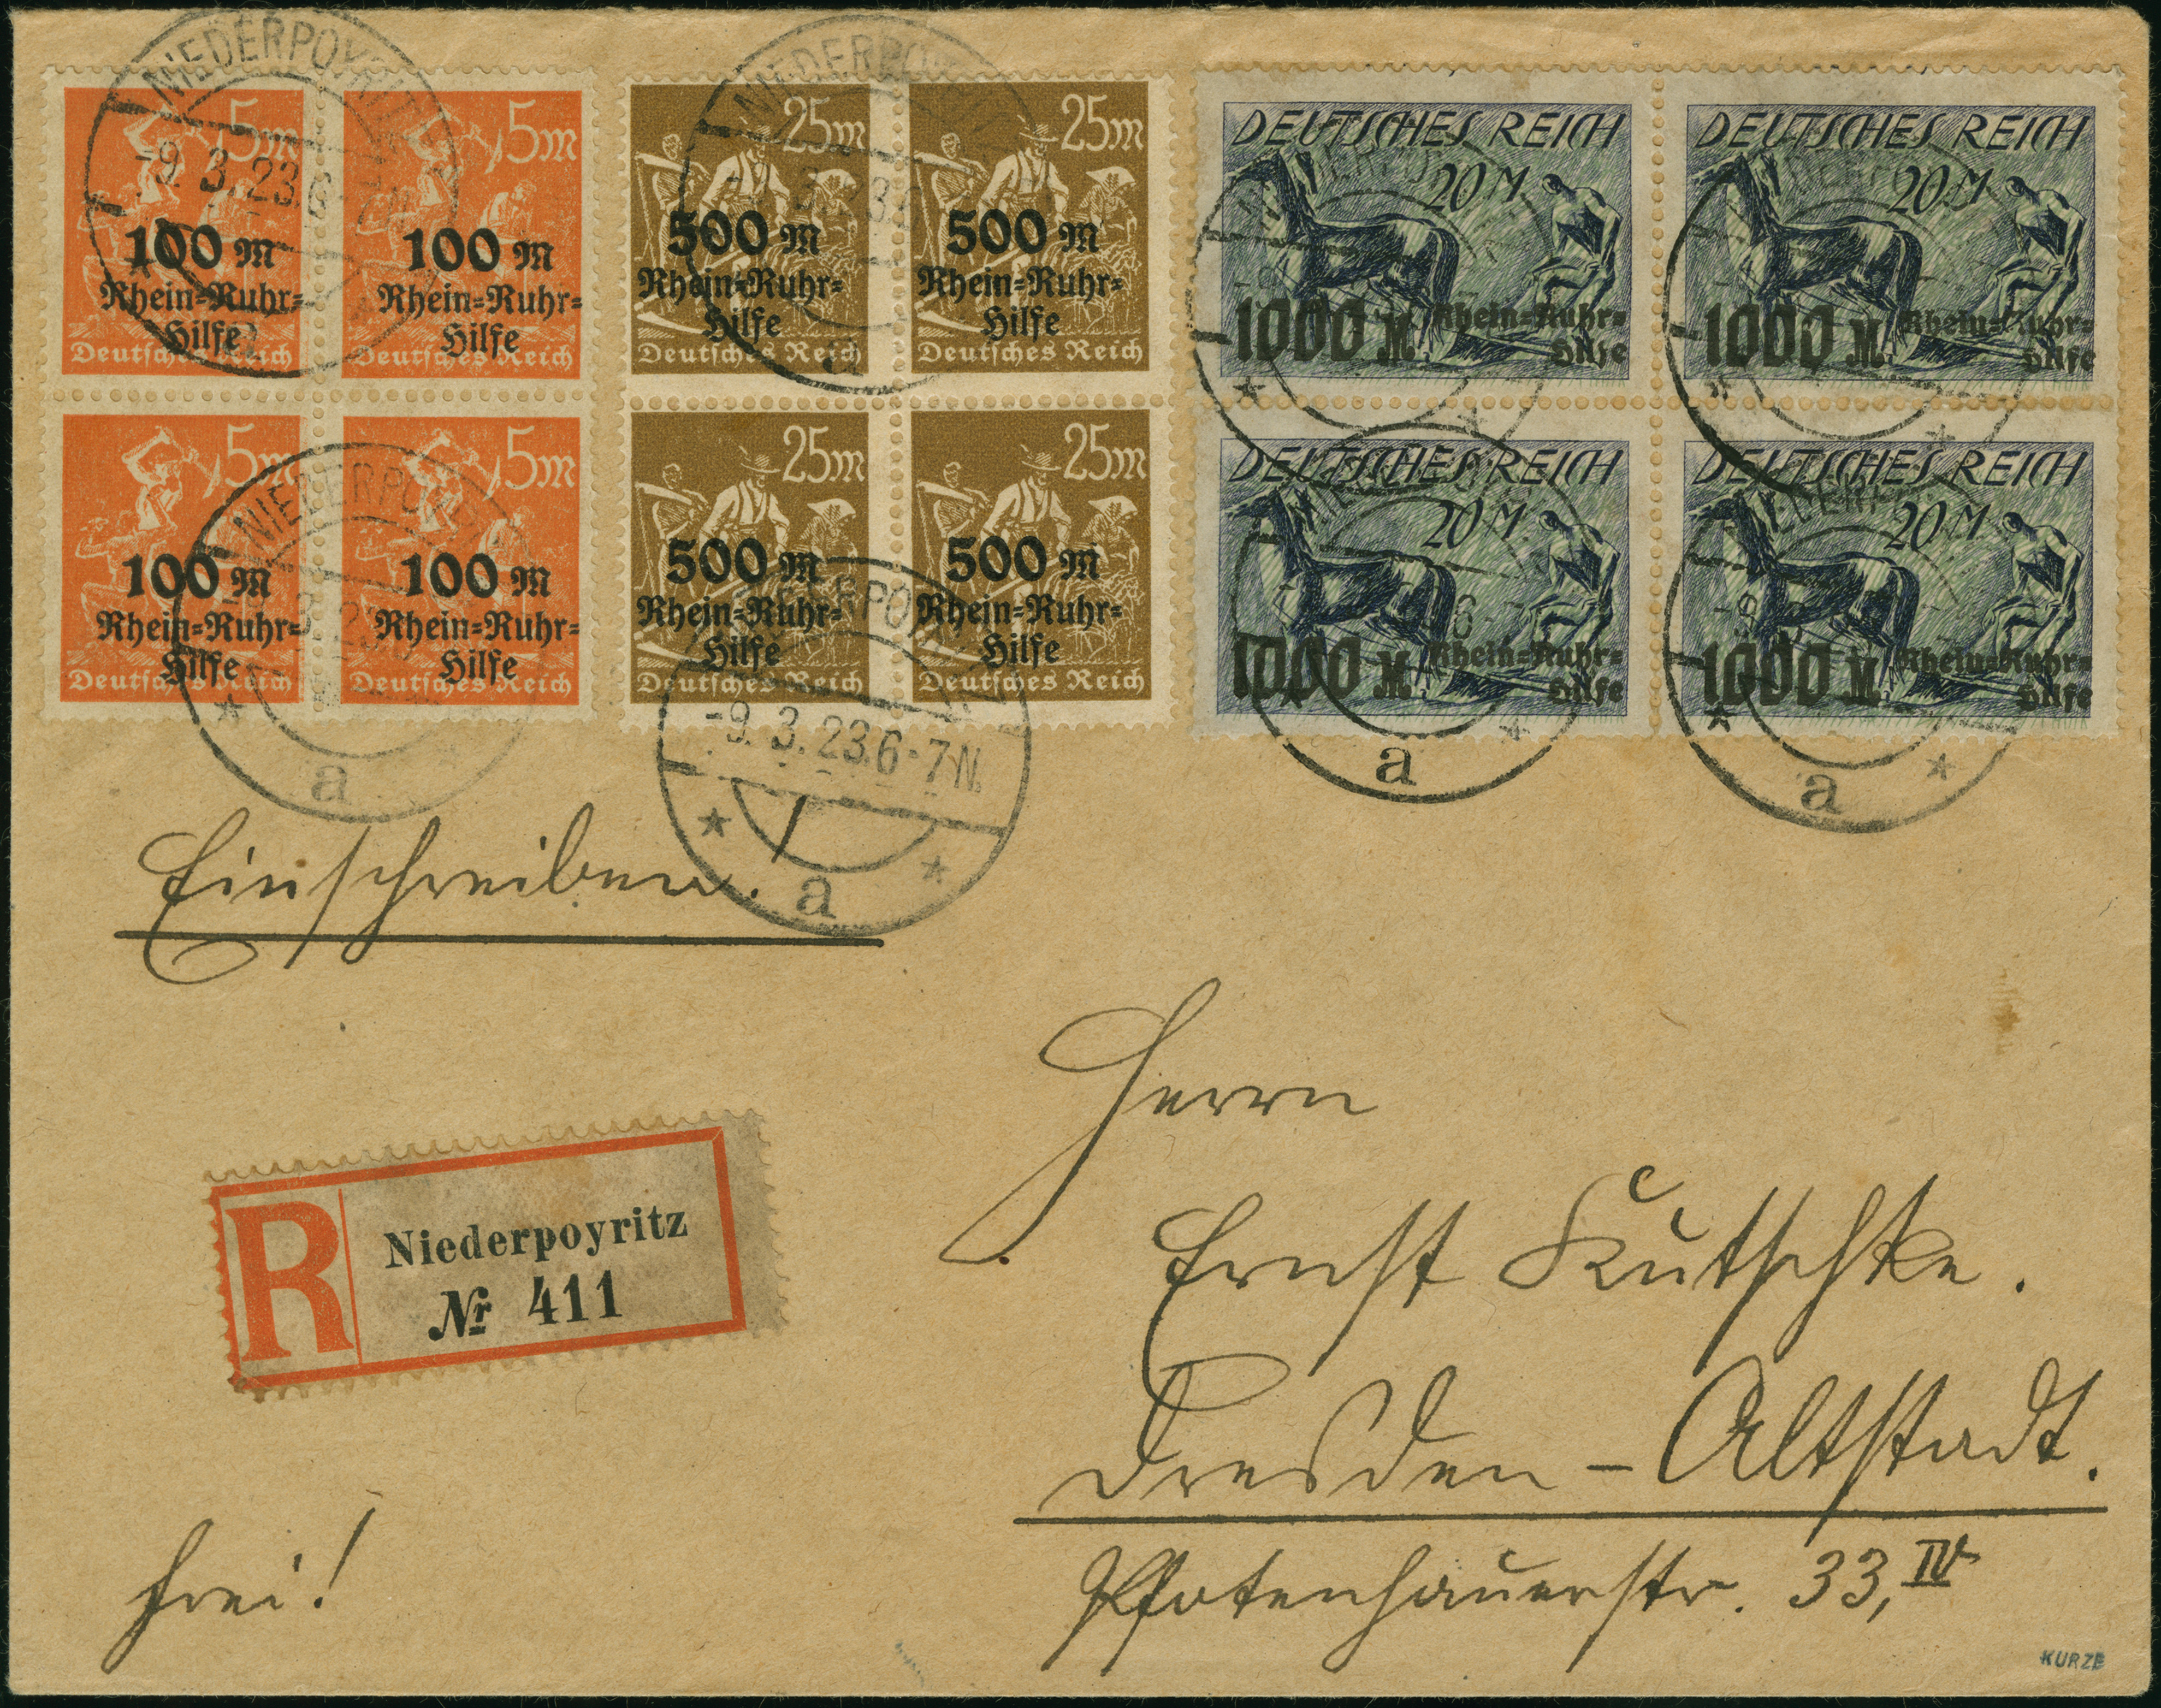 NIEDERPOYRITZ
-9. 3. 23. 6-7 N.
5m
5m
100 M
Rhein=Ruhr=
Hilfe
Deutsches Reich
100 M
Rhein=Ruhr=
Hilfe
Deutsches Reich
5m
5m
100 M
Rhein=Ruhr=
Hilfe
Deutsches Reich
100 M
Rhein=Ruhr=
Hilfe
Deutsches Reich
NIEDERPOYRITZ
a
25m
25m
500 M
Rhein=Ruhr=
Hilfe
Deutsches Reich
500 M
Rhein=Ruhr=
Hilfe
Deutsches Reich
25m
25m
500 M
Rhein=Ruhr=
Hilfe
Deutsches Reich
500 M
Rhein=Ruhr=
Hilfe
Deutsches Reich
-9. 3. 23. 6-7 N.
a
DEUTSCHES REICH
20 M
1000 M. Rhein=Ruhr=
Hilfe
DEUTSCHES REICH
20 M
1000 M. Rhein=Ruhr=
Hilfe
DEUTSCHES REICH
20 M
1000 M. Rhein=Ruhr=
Hilfe
DEUTSCHES REICH
20 M
1000 M. Rhein=Ruhr=
Hilfe
a
a
Einschreiben.
R
Niederpoyritz
Nr 411
Herrn
Ernst Kutschke.
Dresden - Altstadt.
Pfotenhauerstr. 33, IV
frei!
KURZE